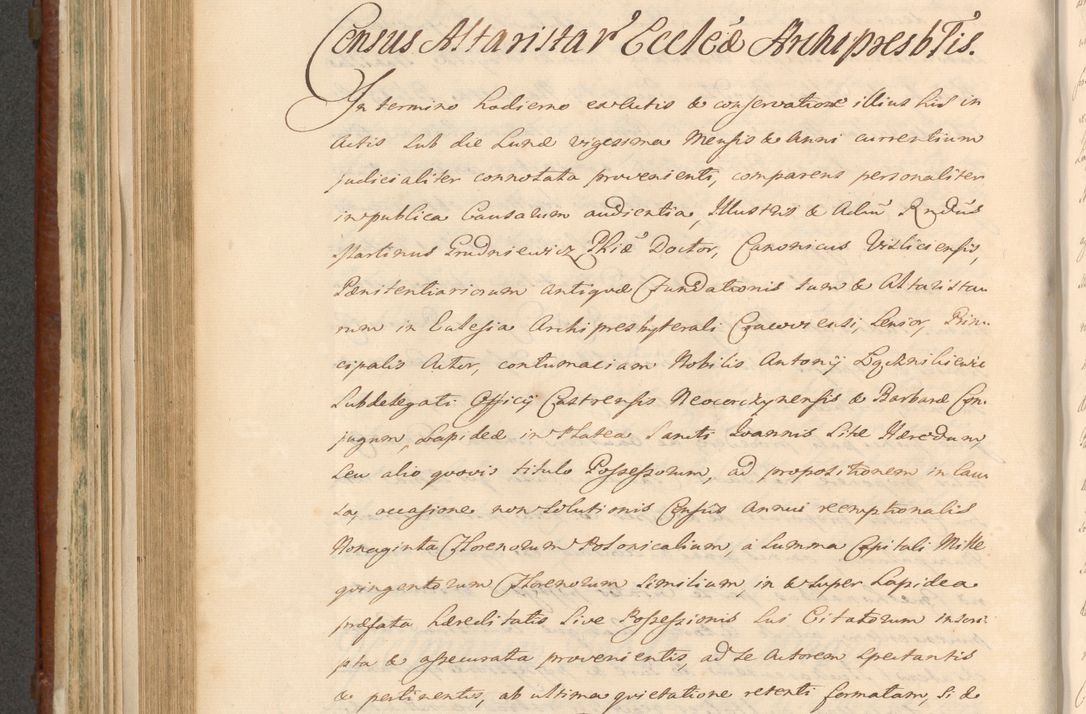 Census Altaristar' Eccleæ Archipresb'Tis.
In termino hodierno ex actis & conservatione illius hic in
Actis sub die Lunæ vigesima Mensis & Anni currentium
judicialiter connotata provenienti, comparens personaliter
in publica Causarum audientia, Illustris & Adm' Rndus
Martinus Grudniewicz Phiæ Doctor, Canonicus Visliciensis,
Pænitentiariorum antiquæ Fundationis tum & Altarista-
rum in Eclesia Archipresbyterali Cracoviensi, Senior Prin-
cipalis Actor, contumaciam Nobilis Antonij
Subdelegati Officij Castrensis Neocorczynensis & Barbaræ Con-
jugum, Lapideæ in Platea Sancti Joannis Sitæ Hæredum,
seu alio quovis titulo Possessorum, ad propositionem in Cau-
sa, occasione non Solutionis Census Annui reemptionalis
Nonaginta Florenorum Polonicalium, a Summa Capitali Mille
quingentorum Florenorum Similium, in & super Lapidea
præfata hæreditatis sive Possessionis sui Citatorum inscri-
pta & assecurata provenientis, ad se Actorem spectantis
& pertinentis, ab ultima quietatione retenti formatam, si de